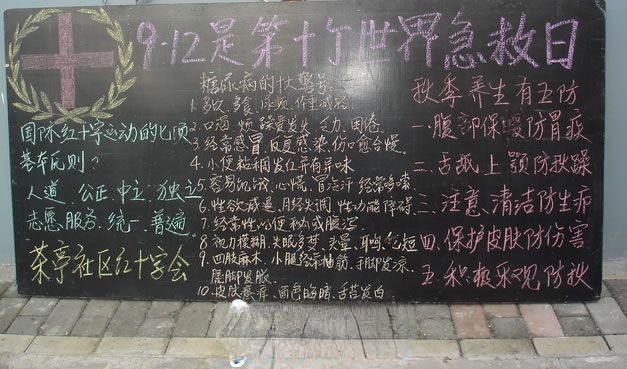 9.12是第十个世界急救日
国际红十字运动的七项
基本原则？
人道 公正 中立 独立
志愿服务 统一 普遍
茶亭社区红十字会
糖尿病的十大警号
1.多饮 多食 尿频 体重减轻
2.口渴 烦躁 易发火 乏力 困倦
3.经常感冒 反复感染 伤口愈合慢
4.小便粘稠发红并有异味
5.容易饥饿 心慌 冒冷汗 经常哆嗦
6.性欲减退 月经失调 性功能障碍
7.经常性的便秘或腹泻
8 视力模糊 失眠多梦 头晕 耳鸣 气短
9.四肢麻木 小腿经常抽筋 手脚发凉
腿脚发胀
10.皮肤瘙痒 面色晦暗 舌苔发白
秋季养生有五防
一.腹部保暖防胃痰
二.舌抵上颚防秋躁
三.注意清洁防生疖
四.保护皮肤防伤害
五.积极乐观防抑